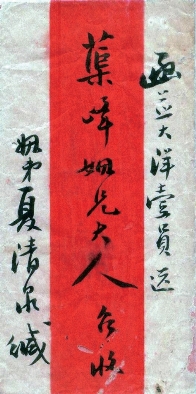 函並大洋壹員送
蕖峰姻兄大人台收
姻弟夏清泉緘